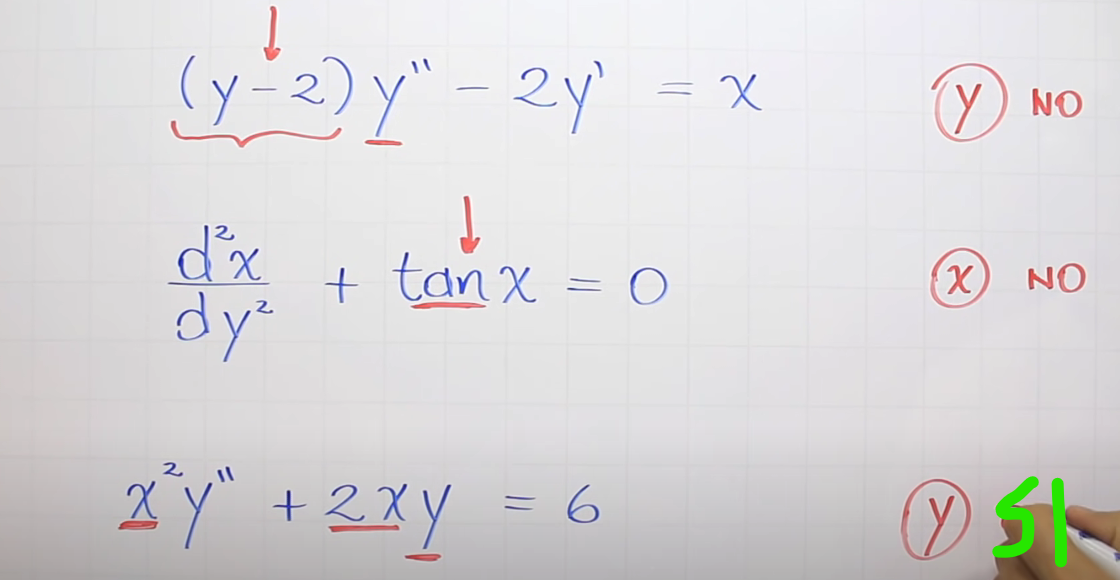 (y - 2) y'' - 2y' = x y NO
d²x/dy² + tan x = 0 x NO
x²y'' + 2xy = 6 y SI